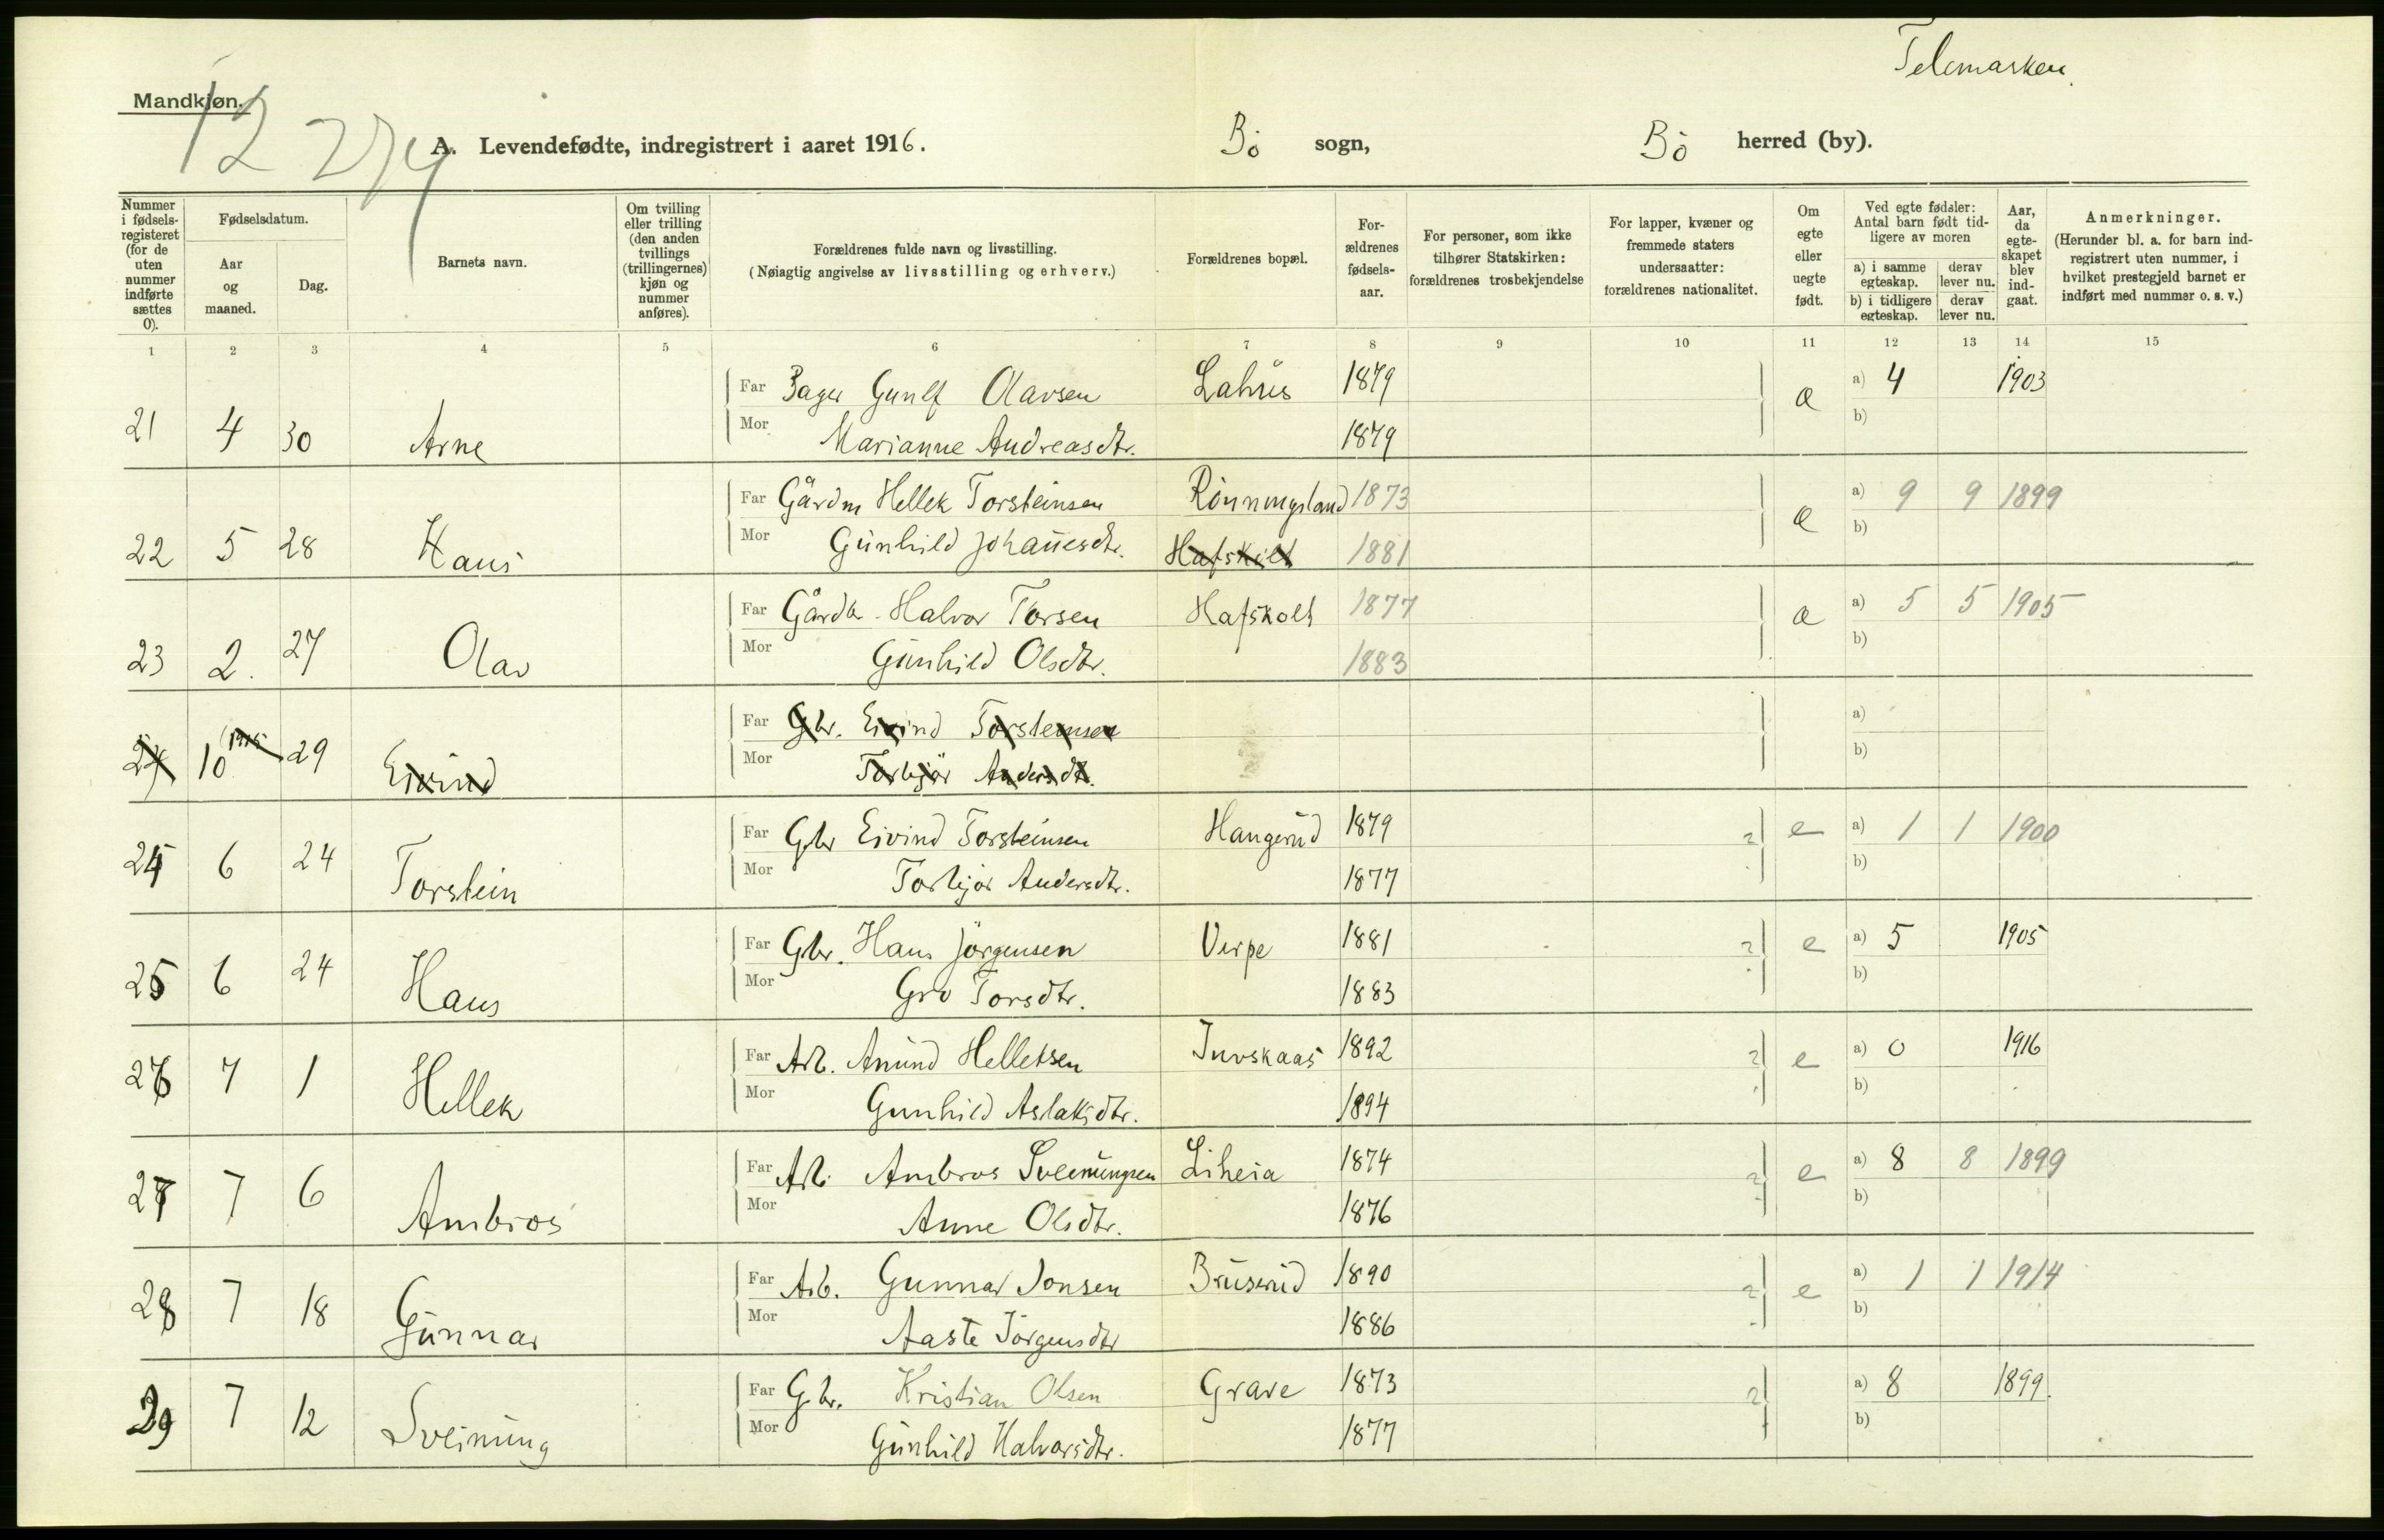 Telemarken.
Mandkjøn.
12 274
A. Levendefødte, indregistrert i aaret 1916. Bö sogn, Bö herred (by).
Nummer i fødselsregisteret (for de uten nummer indførte sættes 0).
Fødselsdatum.
Aar og maaned.
Dag.
Barnets navn.
Om tvilling eller trilling (den anden tvillings (trillingernes) kjøn og nummer anføres).
Forældrenes fulde navn og livsstilling.
(Nøiagtig angivelse av livsstilling og erhverv.)
Forældrenes bopæl.
Forældrenes fødselsaar.
For personer, som ikke tilhører Statskirken: forældrenes trosbekjendelse
For lapper, kvæner og fremmede staters undersaatter: forældrenes nationalitet.
Om egte eller uegte født.
Ved egte fødsler: Antal barn født tidligere av moren
a) i samme egteskap. derav lever nu.
b) i tidligere egteskap. derav lever nu.
Aar, da egteskapet blev indgaat.
Anmerkninger.
(Herunder bl. a. for barn indregistrert uten nummer, i hvilket prestegjeld barnet er indført med nummer o. s. v.)
1 2 3 4 5 6 7 8 9 10 11 12 13 14 15
Far Bager Gunlf Olavsen 1879 a) 4 1903
21 4 30 Arne Mor Marianne Andreasdtr. 1879 b)
Far Gårdm Hellek Torsteinsen Rönningsland 1873 a) 9 9 1899
22 5 28 Hans Mor Gunhild Johanesdtr. Hafskolt 1881 b)
Far Gårdbr. Halvor Torsen Hafskolt 1877 a) 5 5 1905
23 2. 27 Olav Mor Gunhild Olsdtr. 1883 b)
Far Gbr. Eivind Torsteinsen a)
24 10 1915 29 Eivind Mor Torbjör Andersdtr. b)
Far Gbr Eivind Torsteinsen Hangerud 1879 ? e a) 1 1 1900
24 6 24 Torstein Mor Torbjör Andersdtr. 1877 b)
Far Gbr. Hans Jörgensen Verpe 1881 ? e a) 5 1905
25 6 24 Hans Mor Gro Torsdtr. 1883 b)
Far Arb. Amund Helleksen Juvskaas 1892 ? e a) 0 1916
26 7 1 Hellek Mor Gunhild Aslaksdtr. 1894 b)
Far Arb. Ambros Sveinungsen Liheia 1874 ? e a) 8 8 1899
27 7 6 Ambros Mor Anne Olsdtr. 1876 b)
Far Arb. Gunnar Jonsen Bruserud 1890 ? e a) 1 1 1914
28 7 18 Gunnar Mor Aaste Jörgensdtr 1886 b)
Far Gbr. Kristian Olsen Grave 1873 ? a) 8 1899.
29 7 12 Sveinung Mor Gunhild Halvorsdtr. 1877 b)